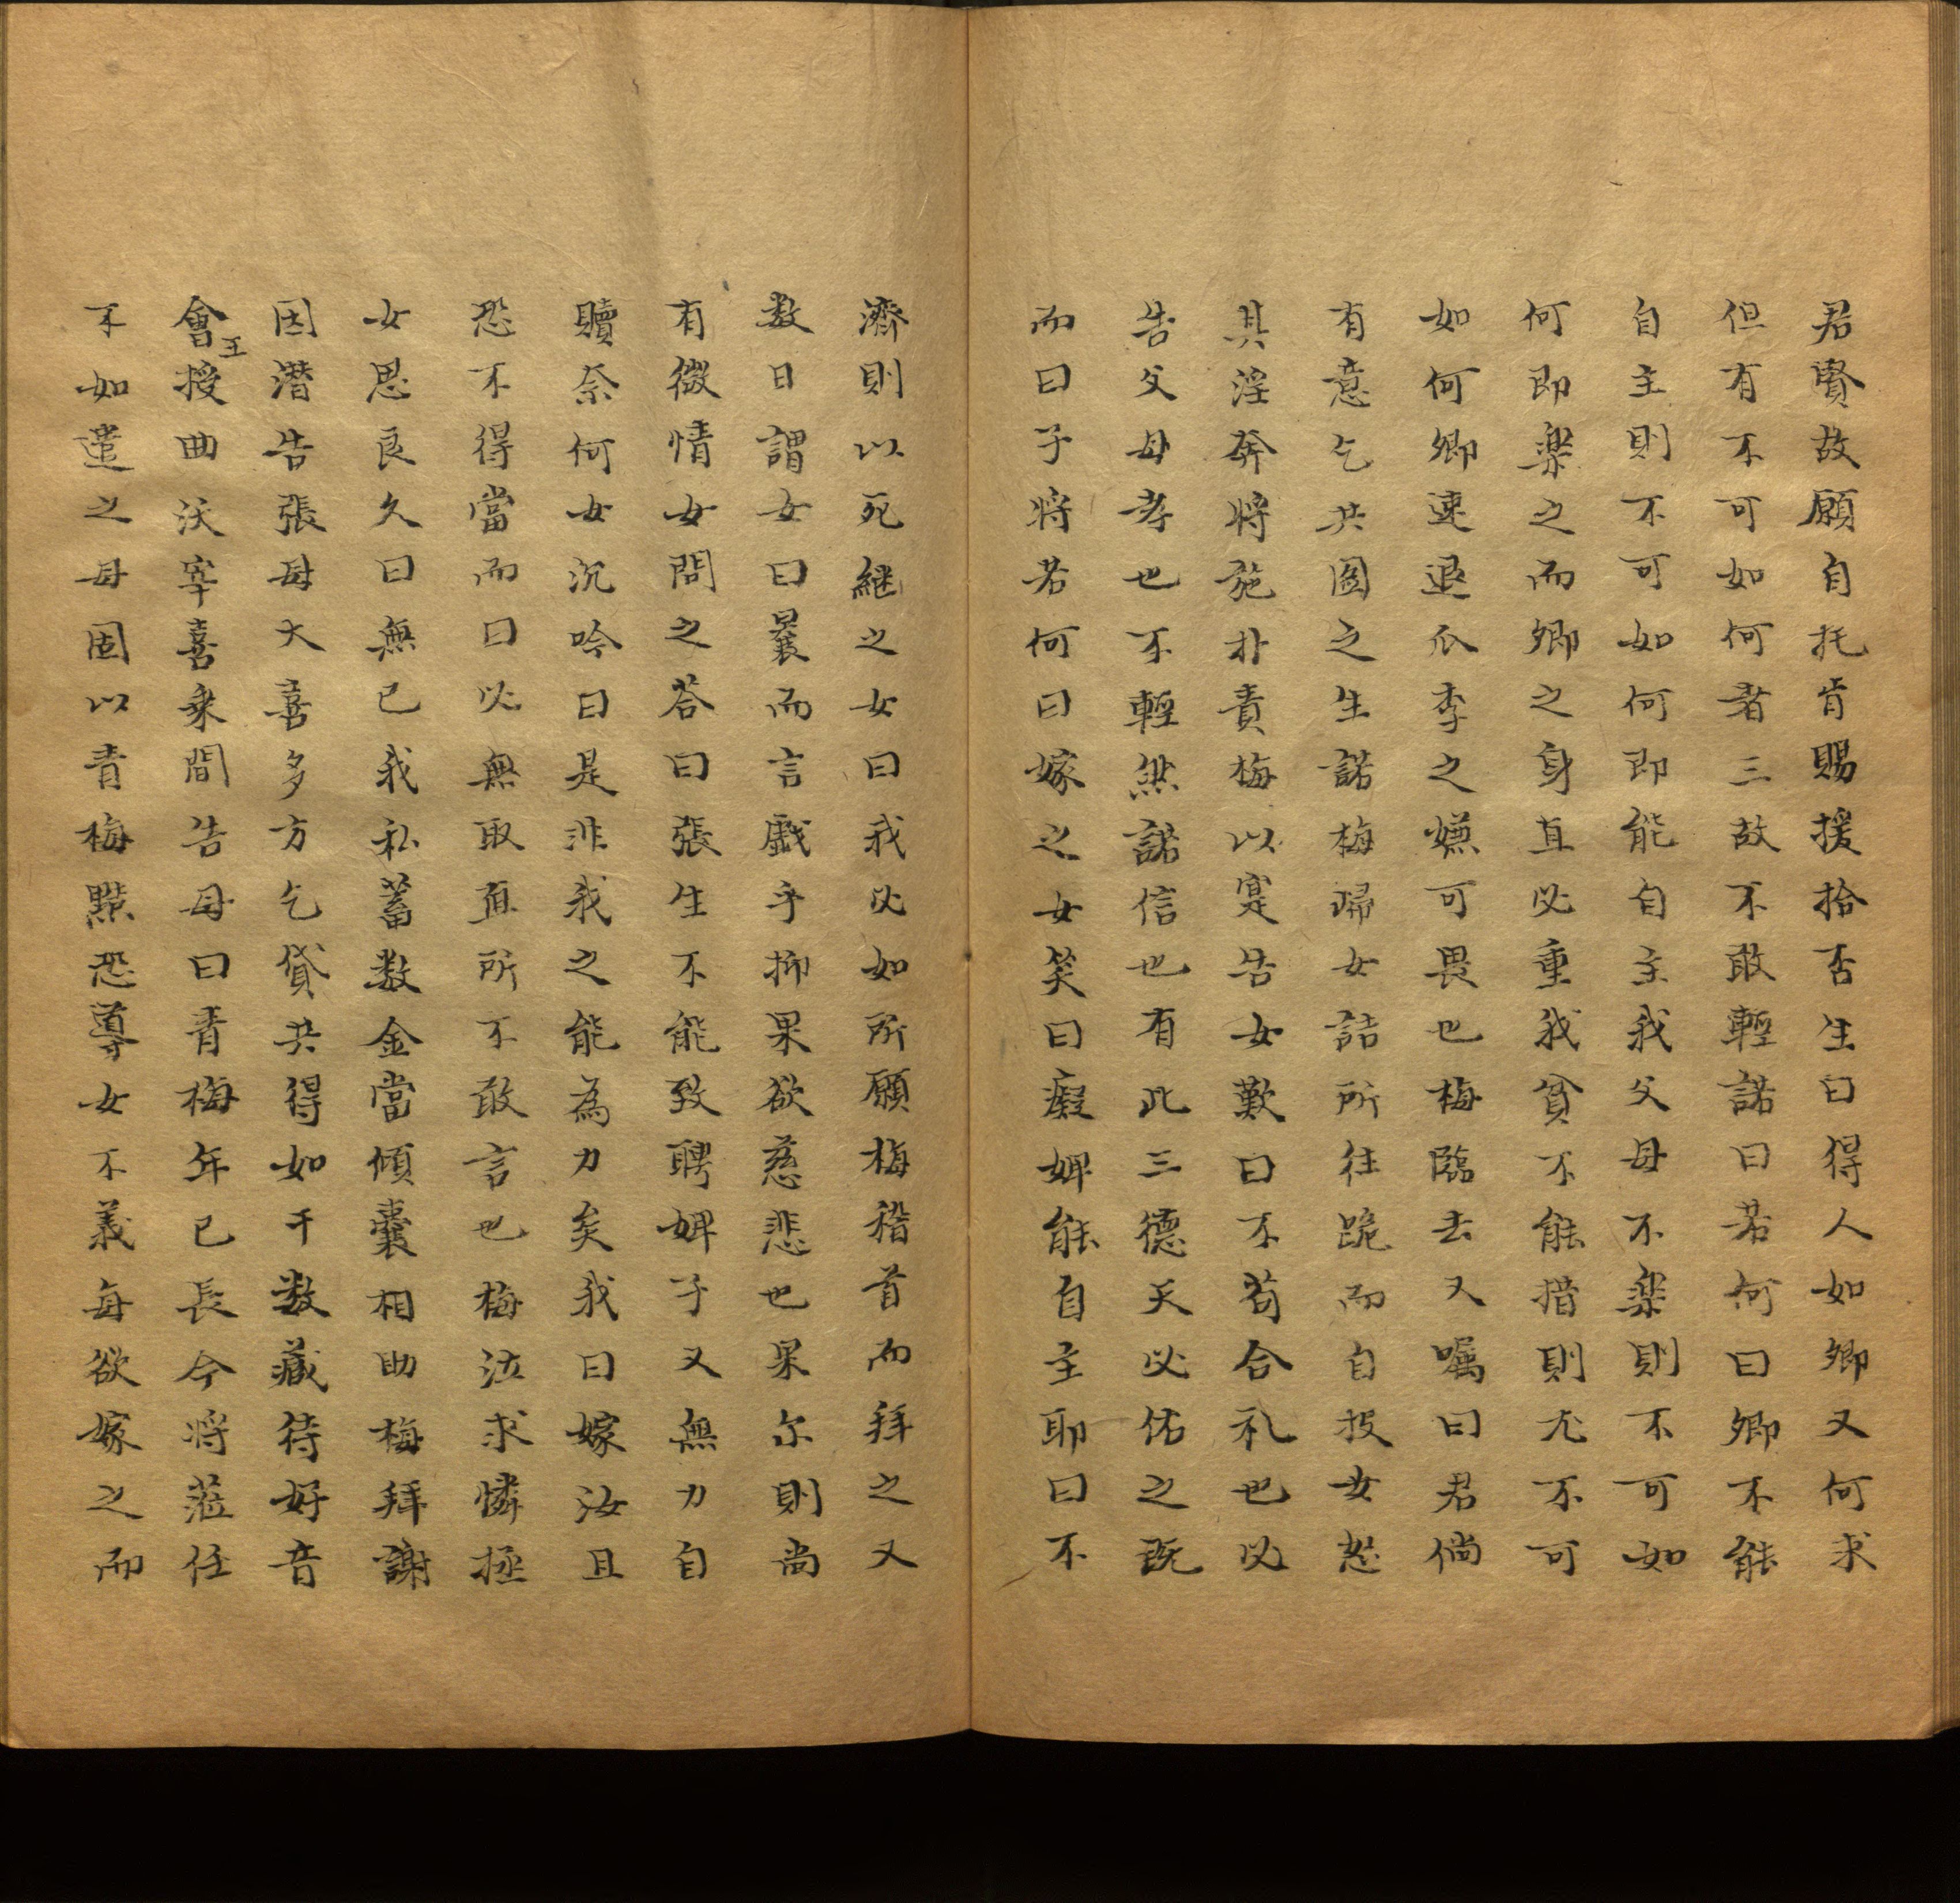 君賢故願自托肯賜援拾否生曰得人如卿又何求
但有不可如何者三故不敢輕諾曰若何曰卿不能
自主則不可如何即能自主我父母不樂則不可如
何即樂之而卿之身直必重我貧不能措則尤不可
如何卿速退瓜李之嫌可畏也梅臨去又嘱曰君倘
有意乞共圖之生諾梅歸女詰所往跪而自投女怒
其淫奔將施扑責梅以寔告女歎曰不苟合礼也必
告父母孝也不輕然諾信也有此三德天必佑之既
而曰子将若何曰嫁之女笑曰癡婢能自主耶曰不
濟則以死継之女曰我必如所願梅稽首而拜之又
数日謂女曰曩而言戯乎抑果欲慈悲也果尔則尚
有微情女問之荅曰張生不能致聘婢子又無力自
贖奈何女沉吟曰是非我之能為力矣我曰嫁汝且
恐不得當而曰必無取直所不敢言也梅泣求憐拯
女思良久曰無已我私蓄数金當傾囊相助梅拜謝
因潜告張母大喜多方乞貸共得如干数藏待好音
會王授曲沃宰喜乘間告母曰青梅年已長今将蒞任
不如遣之母固以青梅黠恐導女不義每欲嫁之而